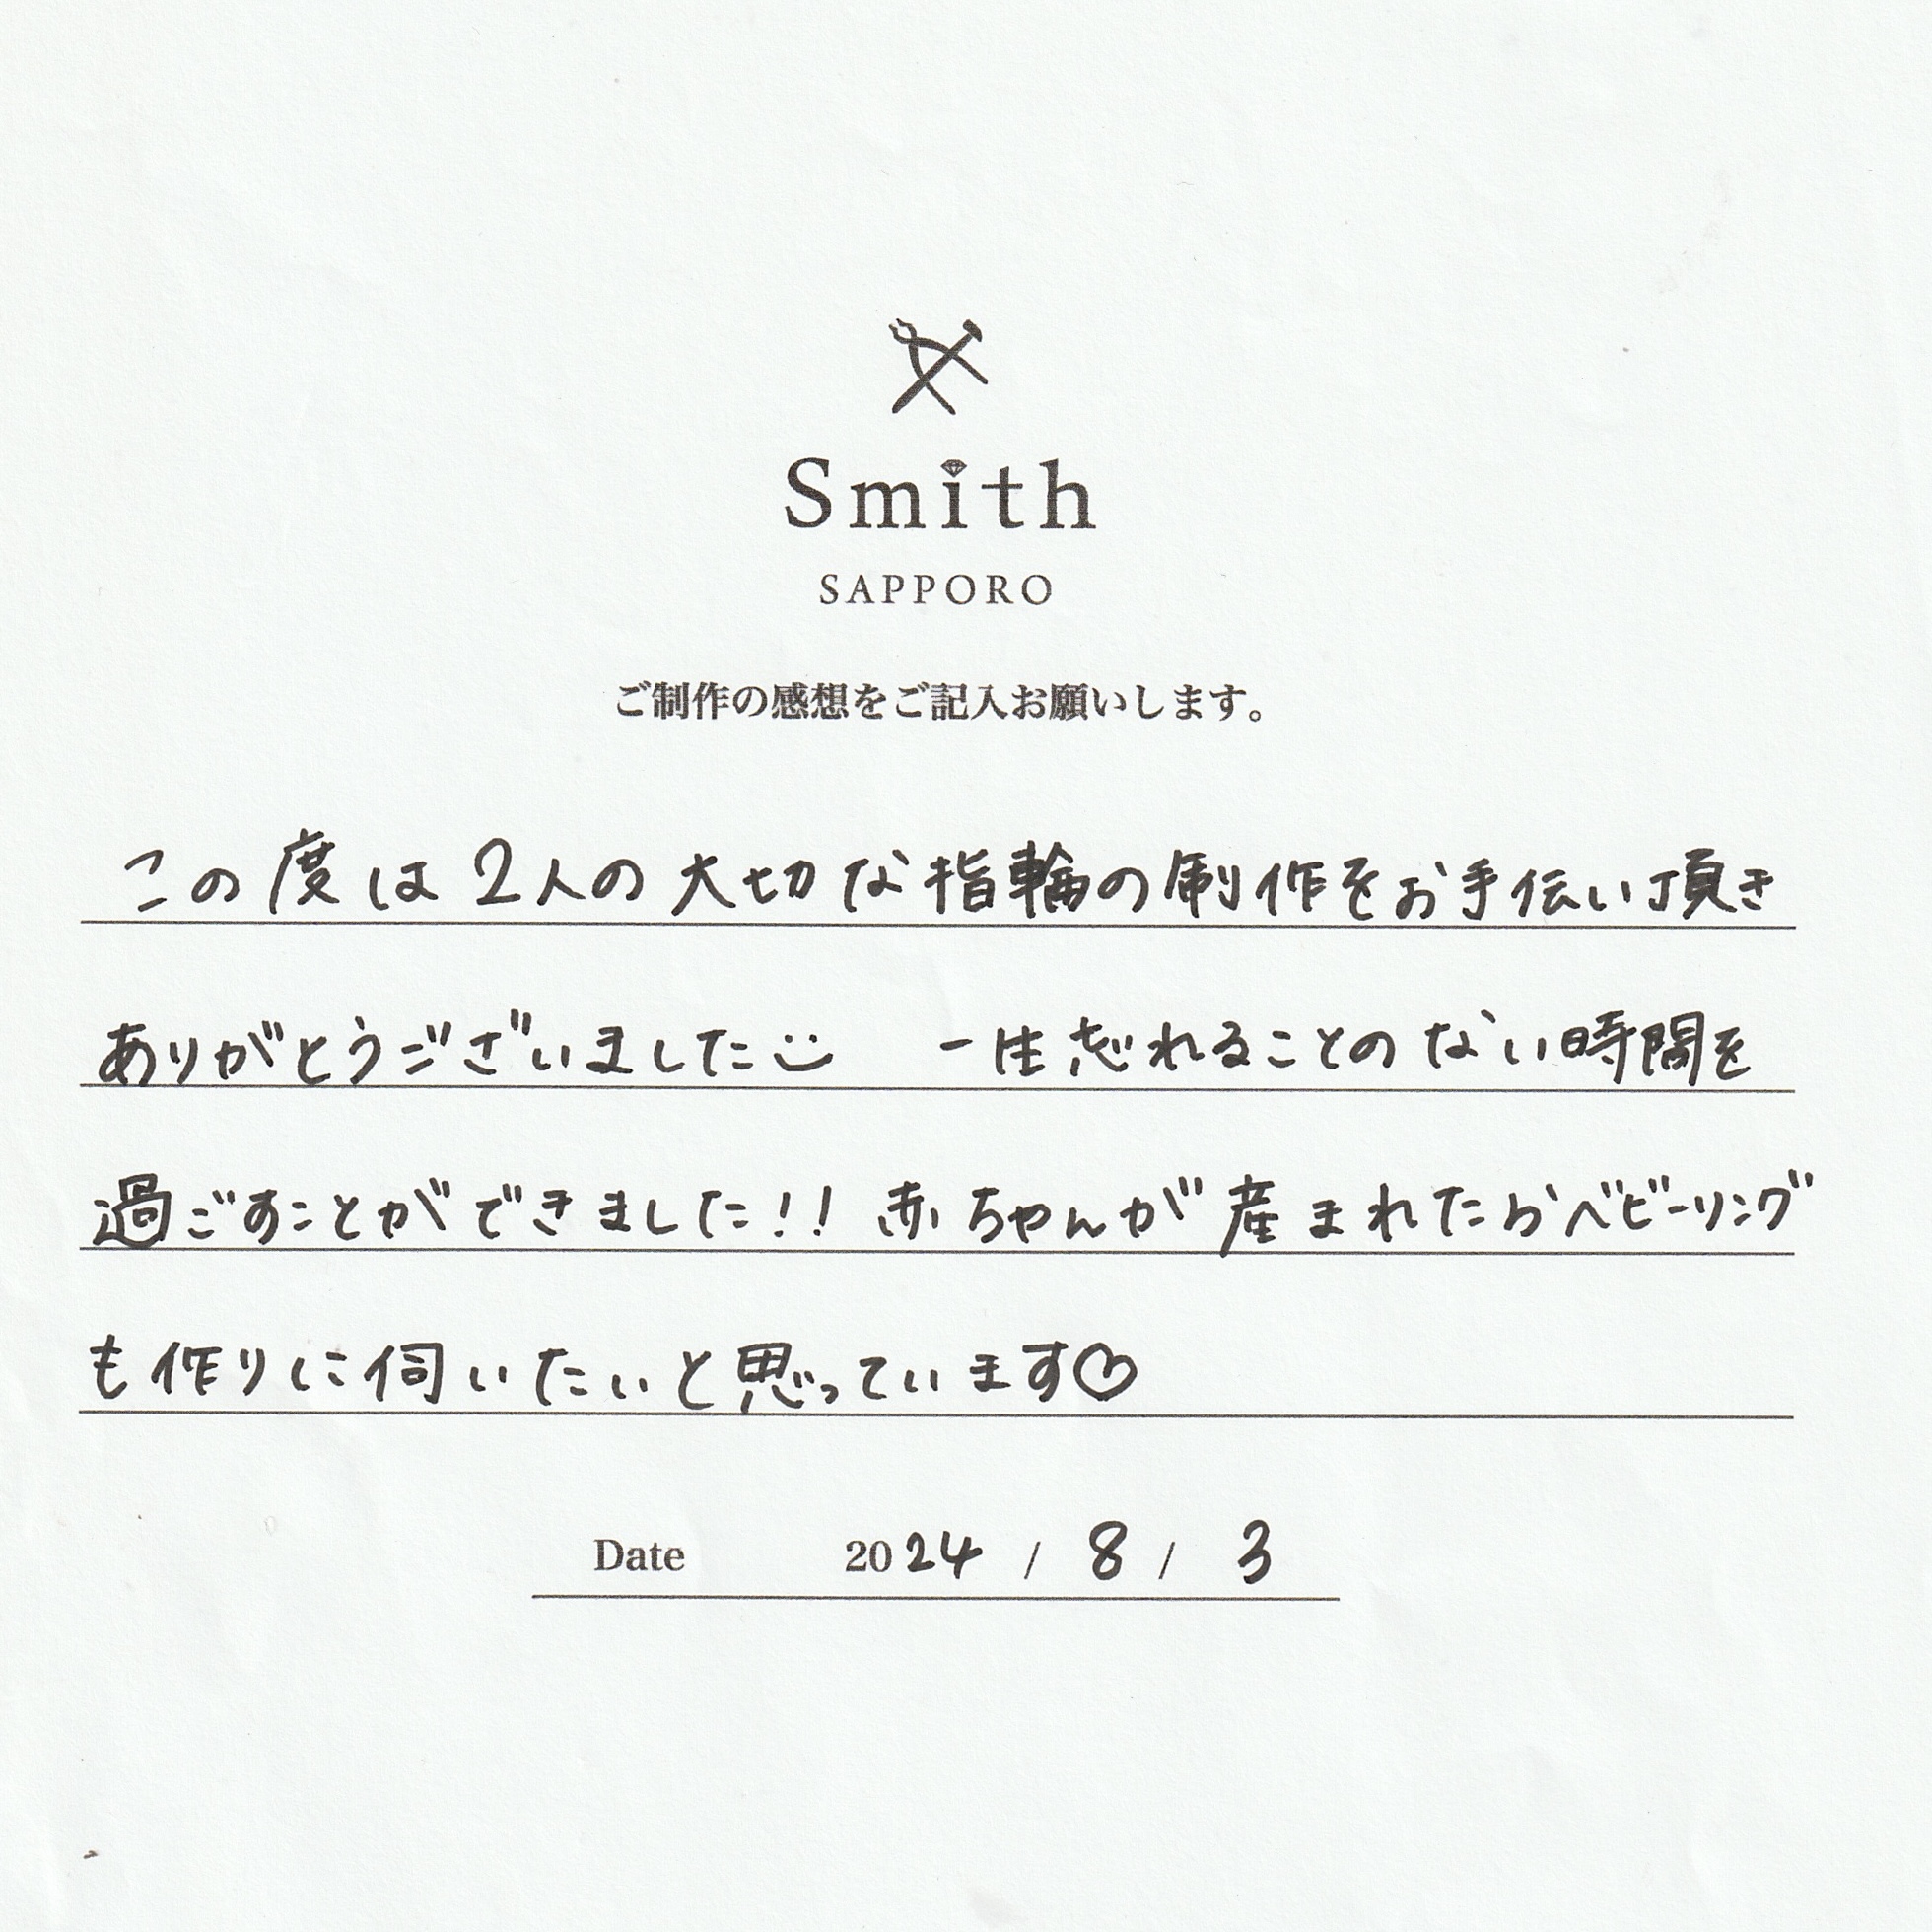 Smith
SAPPORO
ご制作の感想をご記入お願いします。
この度は2人の大切な指輪の制作をお手伝い頂き
ありがとうございました 一生忘れることのない時間を
過ごすことができました!! 赤ちゃんが産まれたらベビーリング
も作りに伺いたいと思っています♡
Date 2024 / 8 / 3